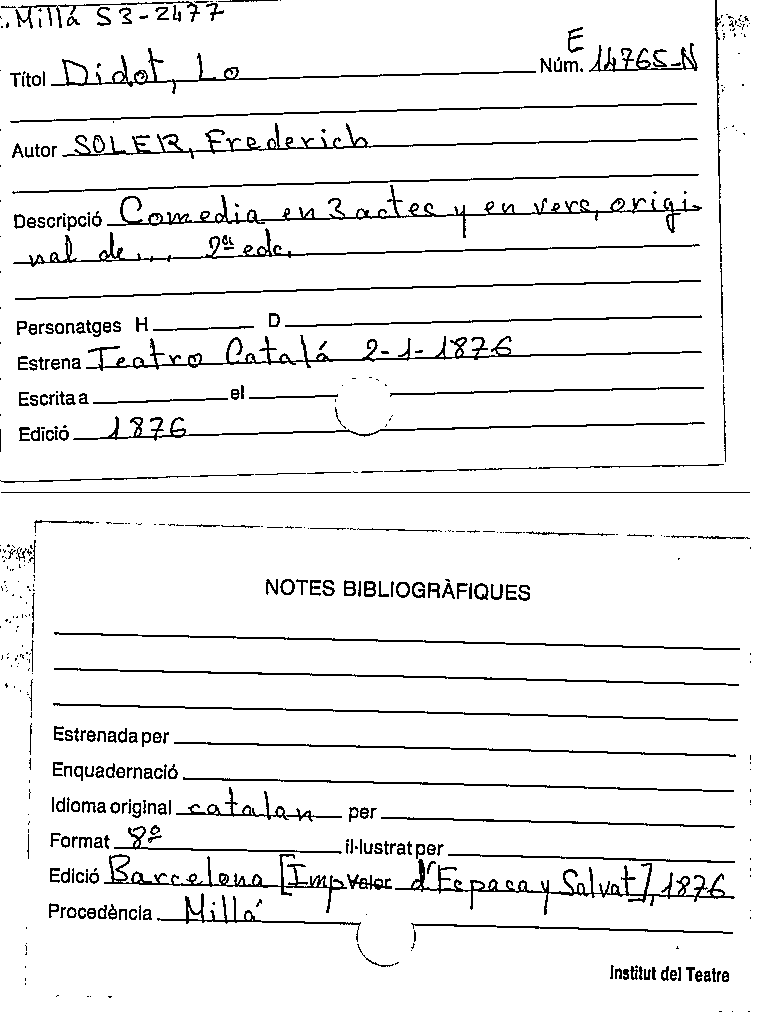 . Millá S3-2477
E
Títol Didot, Lo Núm. 14765-N
Autor SOLER, Frederich
Descripció Comedia en 3 actes y en vers, origi-
nal de ... 2ª edc.
Personatges H D
Estrena Teatro Catalá 2-1-1876
Escrita a el
Edició 1876
NOTES BIBLIOGRÀFIQUES
Estrenada per
Enquadernació
Idioma original catalan per
Format 8º il·lustrat per
Edició Barcelona [Imp Valor d'Espasa y Salvat], 1876
Procedència Millá
Institut del Teatre